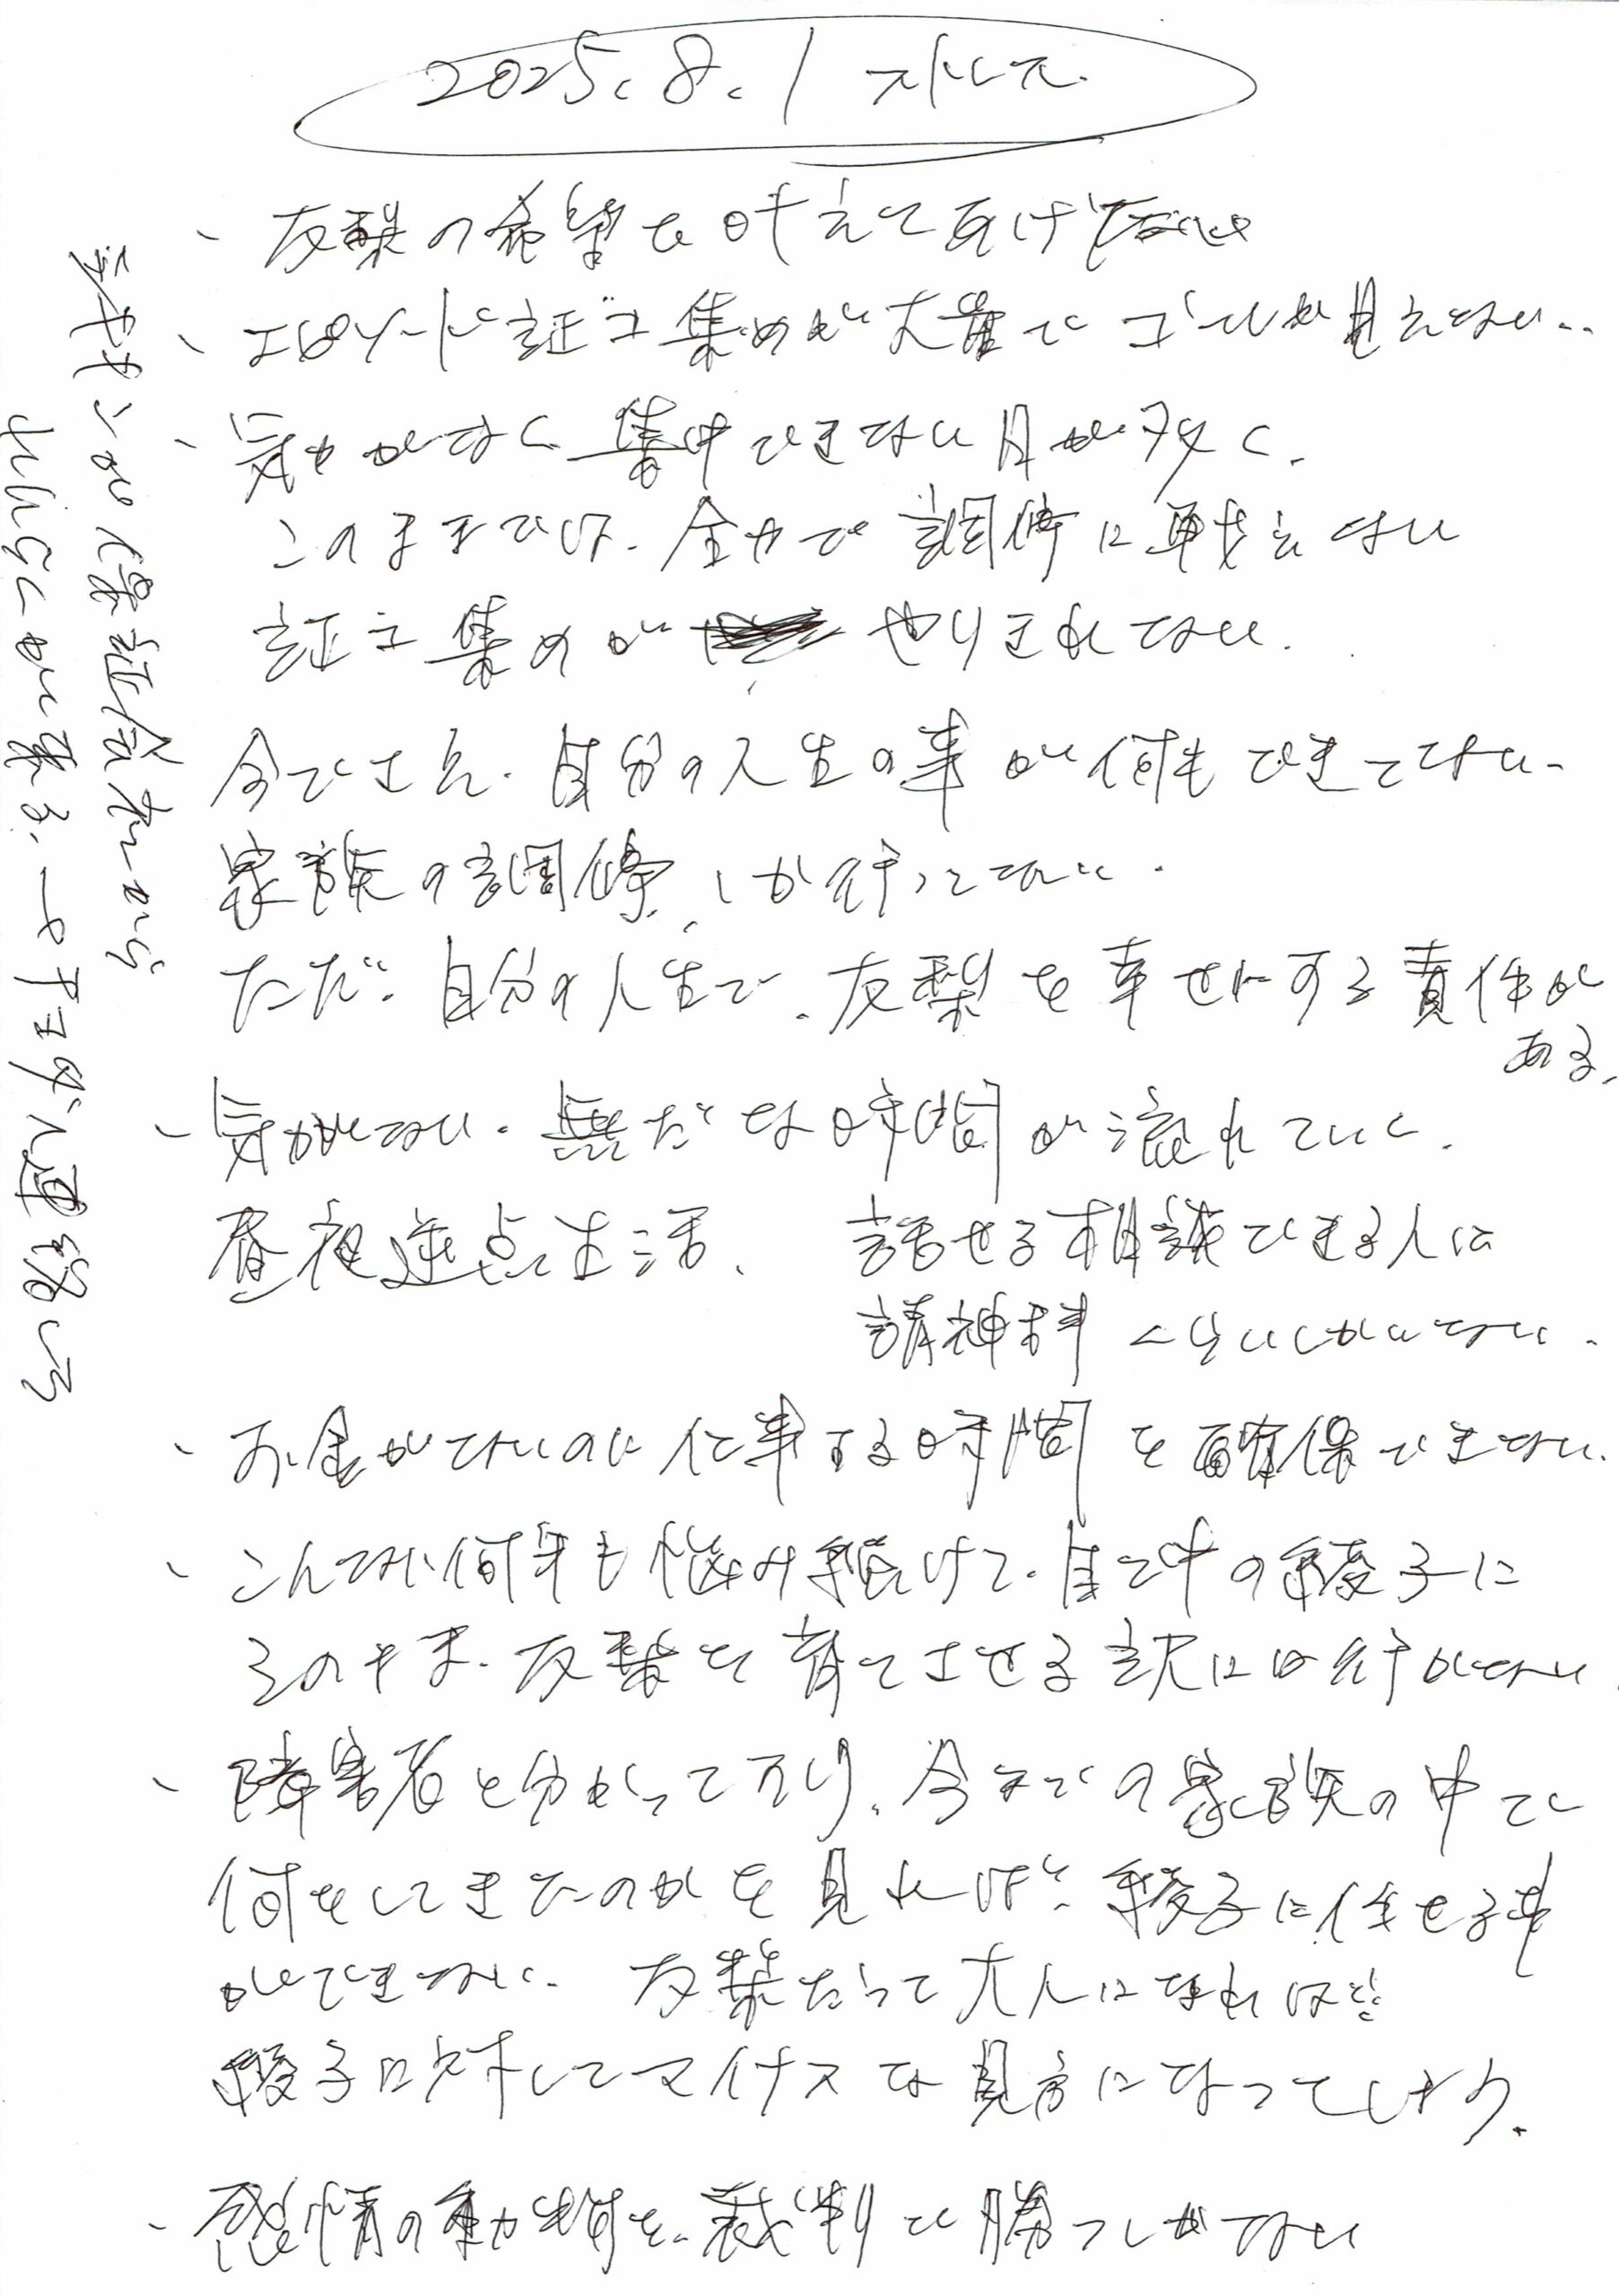 2025.8.1 ストレス.
・友梨の希望を叶えてあげ
・エピソード証コ集めが大量でゴールが見えない..
・気力がなく集中できない日が多く.
このままでは、全力で調停に戦えない
証コ集めが やりきれてない.
今でさえ、自分の人生の事が何もできてない.
家族の調停しか行ってない.
ただ、自分の人生で、友梨を幸せにする責任が
ある.
・気力がない、無だな時間が流れていく.
昼夜逆点生活、
話せる相談できる人は
請神科くらいしかいない.
・お金がないのに仕事する時間を確保できない.
・こんなに何年も悩み続けて、自己中の綾子に
そのまま、友梨を育てさせる訳には行かない
・障害者と分かっており、今までの家族の中で
何をしてきたのかを見れば、綾子に任せる事
ができない. 友梨だって大人になればなるほど
綾子に対してマイナスな見方になってしまう.
・感情の動力を、裁判で勝つしかない
保証会社から
が来る、
連絡